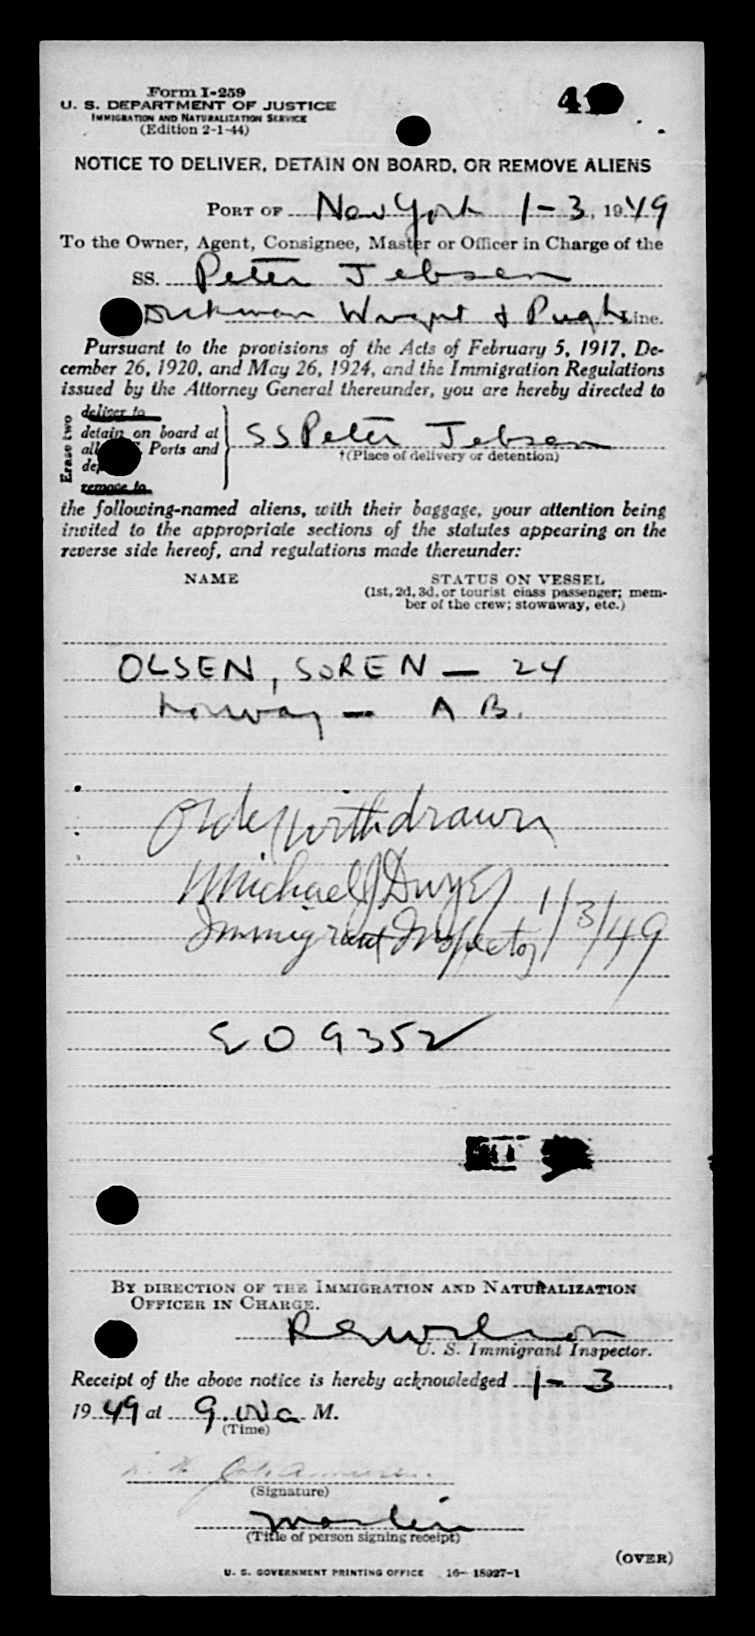 Form I-259
U. S. DEPARTMENT OF JUSTICE
IMMIGRATION AND NATURALIZATION SERVICE
(Edition 2-1-44)
NOTICE TO DELIVER, DETAIN ON BOARD, OR REMOVE ALIENS
PORT OF New York 1-3, 1949
To the Owner, Agent, Consignee, Master or Officer in Charge of the
SS. Peter Jebsen
Wright & Pugh Line.
Pursuant to the provisions of the Acts of February 5, 1917, De-
cember 26, 1920, and May 26, 1924, and the Immigration Regulations
issued by the Attorney General thereunder, you are hereby directed to
Erase two
deliver to
detain on board at
Ports and
remove to
SS Peter Jebsen
†(Place of delivery or detention)
the following-named aliens, with their baggage, your attention being
invited to the appropriate sections of the statutes appearing on the
reverse side hereof, and regulations made thereunder:
NAME
STATUS ON VESSEL
(1st, 2d, 3d, or tourist class passenger; mem-
ber of the crew; stowaway, etc.)
OLSEN, SOREN — 24
Norway — A B.
Order withdrawn
Michael J Dwyer
Immigrant Inspector 1/3/49
EO 9352
BY DIRECTION OF THE IMMIGRATION AND NATURALIZATION
OFFICER IN CHARGE.
Wilson
U. S. Immigrant Inspector.
Receipt of the above notice is hereby acknowledged 1-3,
1949 at M.
(Time)
(Signature)
(Title of person signing receipt)
(OVER)
U. S. GOVERNMENT PRINTING OFFICE 16—18927-1